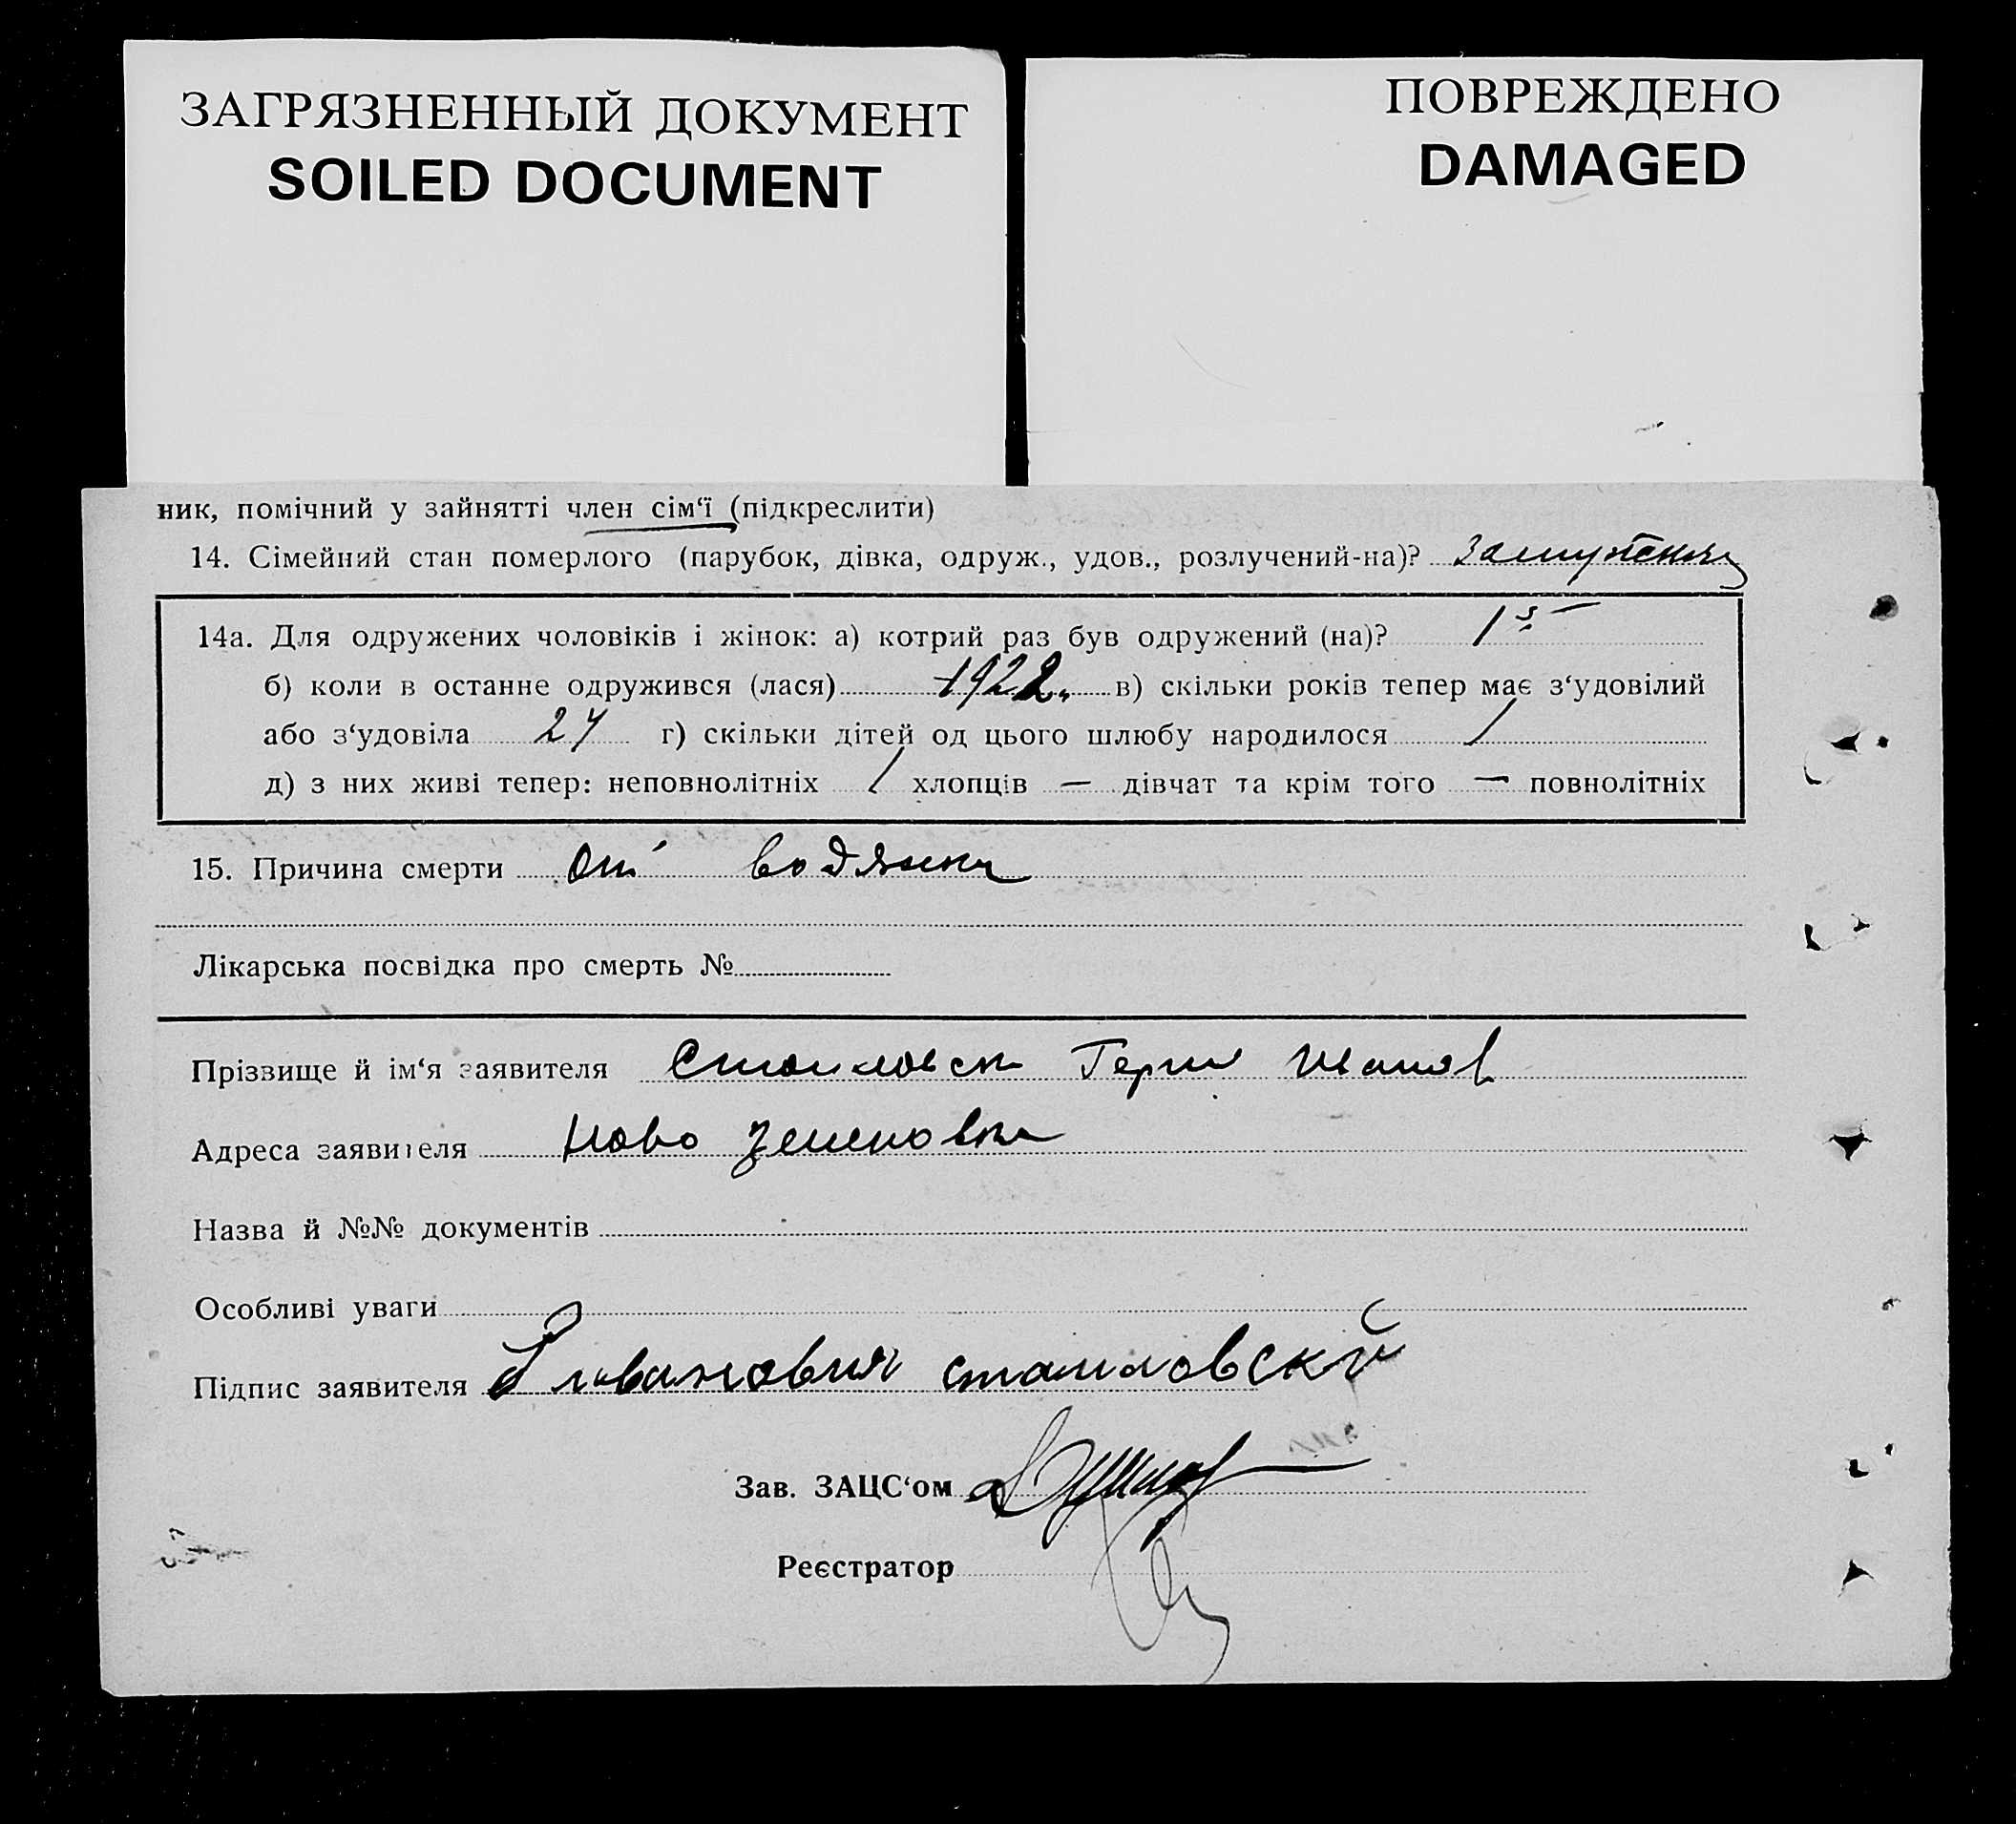 ЗАГРЯЗНЕННЫЙ ДОКУМЕНТ
SOILED DOCUMENT
ПОВРЕЖДЕНО
DAMAGED
ник, помічний у зайнятті член сім‘ї (підкреслити)
14. Сімейний стан померлого (парубок, дівка, одруж., удов., розлучений-на)?
14а. Для одружених чоловіків і жінок: а) котрий раз був одружений (на)? 1
б) коли в останне одружився (лася) 1922 в) скільки років тепер має з‘удовілий
або з‘удовіла 24 г) скільки дітей од цього шлюбу народилося 1
д) з них живі тепер: неповнолітніх 1 хлопців — дівчат та крім того — повнолітніх
15. Причина смерти от водянки
Лікарська посвідка про смерть №
Прізвище й ім‘я заявителя
Адреса заявителя Ново
Назва й №№ документів
Особливі уваги
Підпис заявителя
Зав. ЗАЦС‘ом
Реєстратор